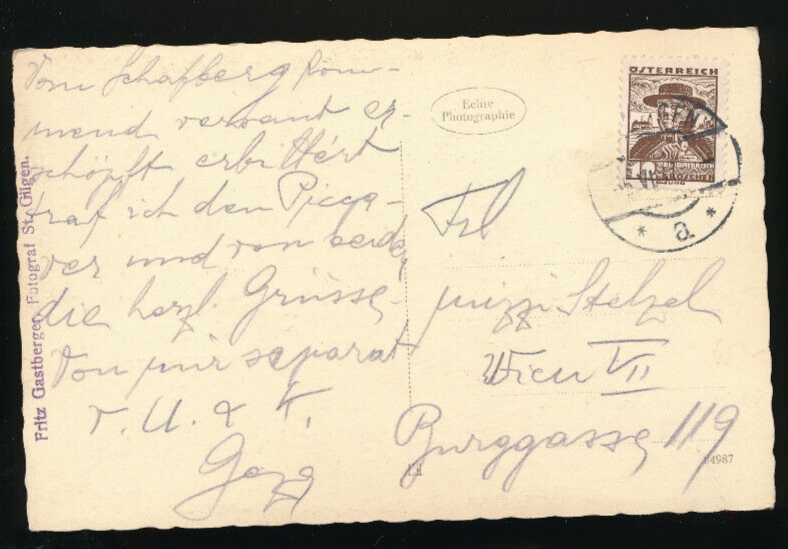 Vom Schafberg kom-
mend verwant er-
schöpft erbittert
traf ich den Picca-
ver und von beiden
die herzl. Grüsse.
Von mir separat
r. U. & K.
Fritz Gastberger, Fotograf St. Gilgen.
Echte
Photographie
ÖSTERREICH
GEN
a
Frl
Mizzi Stelzel
Wien VII
Burggasse 119
94987